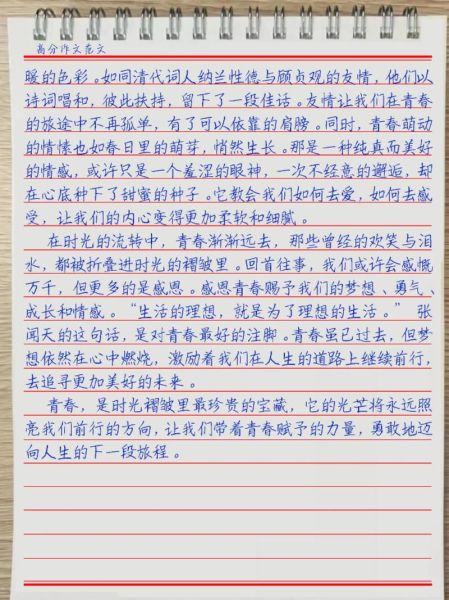 高分作文范文
暖的色彩。如同清代词人纳兰性德与顾贞观的友情，他们以
诗词唱和，彼此扶持，留下了一段佳话。友情让我们在青春
的旅途中不再孤单，有了可以依靠的肩膀。同时，青春萌动
的情愫也如春日里的萌芽，悄然生长。那是一种纯真而美好
的情感，或许只是一个羞涩的眼神，一次不经意的邂逅，却
在心底种下了甜蜜的种子。它教会我们如何去爱，如何去感
受，让我们的内心变得更加柔软和细腻。
在时光的流转中，青春渐渐远去，那些曾经的欢笑与泪
水，都被折叠进时光的褶皱里。回首往事，我们或许会感慨
万千，但更多的是感恩。感恩青春赐予我们的梦想、勇气、
成长和情感。“生活的理想，就是为了理想的生活。”张
闻天的这句话，是对青春最好的注脚。青春虽已过去，但梦
想依然在心中燃烧，激励着我们在人生的道路上继续前行，
去追寻更加美好的未来。
青春，是时光褶皱里最珍贵的宝藏，它的光芒将永远照
亮我们前行的方向，让我们带着青春赋予的力量，勇敢地迈
向人生的下一段旅程。